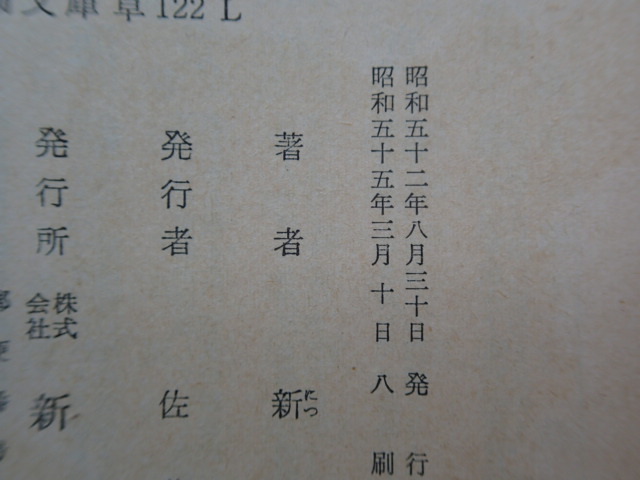 文庫草122L
昭和五十二年八月三十日発行
昭和五十五年三月十日八刷
著者 新にっ
発行者 佐
発行所 株式会社 新